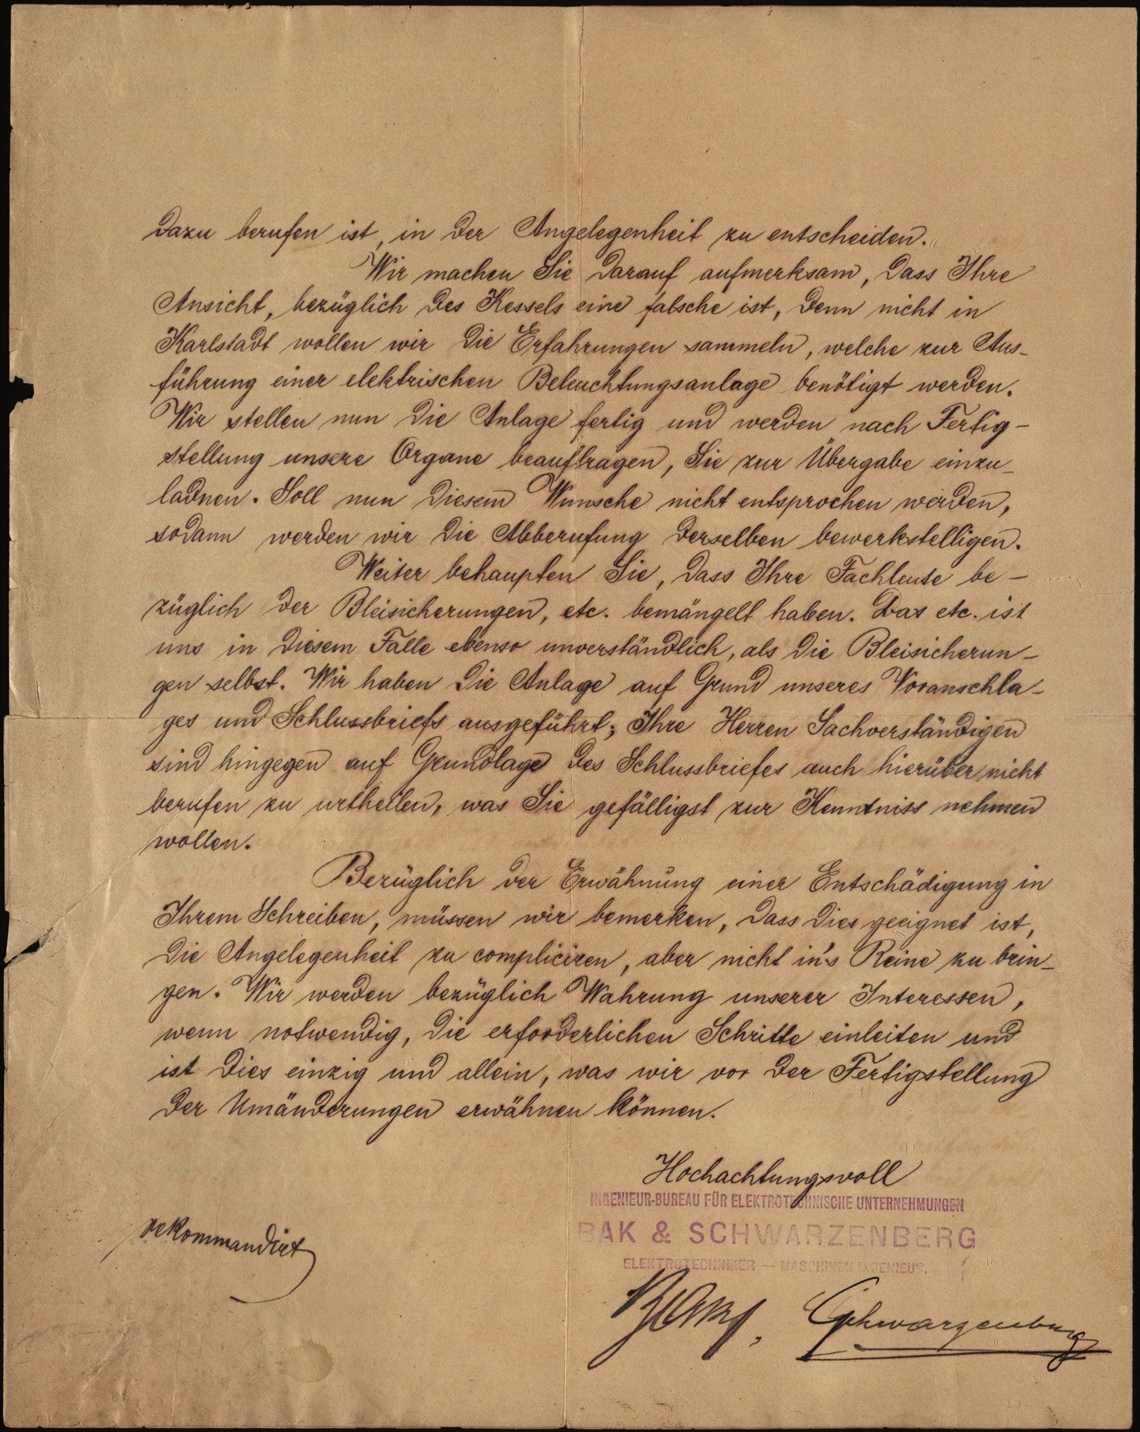 dazu berufen ist, in der Angelegenheit zu entscheiden.
Wir machen Sie darauf aufmerksam, dass Ihre
Ansicht, bezüglich des Kessels eine falsche ist, denn nicht in
Karlstadt wollen wir die Erfahrungen sammeln, welche zur Aus-
führung einer elektrischen Beleuchtungsanlage benötigt werden.
Wir stellen nun die Anlage fertig und werden nach Fertig-
stellung unsere Organe beauftragen, Sie zur Übergabe einzu-
ladnen. Soll nun diesem Wunsche nicht entsprochen werden,
sodann werden wir die Abberufung derselben bewerkstelligen.
Weiter behaupten Sie, dass Ihre Fachleute be-
züglich der Bleisicherungen, etc. bemängelt haben. Das etc. ist
uns in diesem Falle ebenso unverständlich, als die Bleisicherun-
gen selbst. Wir haben die Anlage auf Grund unseres Voranschla-
ges und Schlussbriefs ausgeführt; Ihre Herren Sachverständigen
sind hingegen auf Grundlage des Schlussbriefes auch hierüber nicht
berufen zu urtheilen, was Sie gefälligst zur Kenntniss nehmen
wollen.
Bezüglich der Erwähnung einer Entschädigung in
Ihrem Schreiben, müssen wir bemerken, dass dies geeignet ist,
die Angelegenheit zu compliciren, aber nicht in's Reine zu brin-
gen. Wir werden bezüglich Wahrung unserer Interessen,
wenn notwendig, die erforderlichen Schritte einleiten und
ist dies einzig und allein, was wir vor der Fertigstellung
der Umänderungen erwähnen können.
Hochachtungsvoll
INGENIEUR-BUREAU FÜR ELEKTROTECHNISCHE UNTERNEHMUNGEN
BAK & SCHWARZENBERG
ELEKTROTECHNIKER — MASCHINEN INGENIEUR.
rekommandirt
Bak, Schwarzenberg